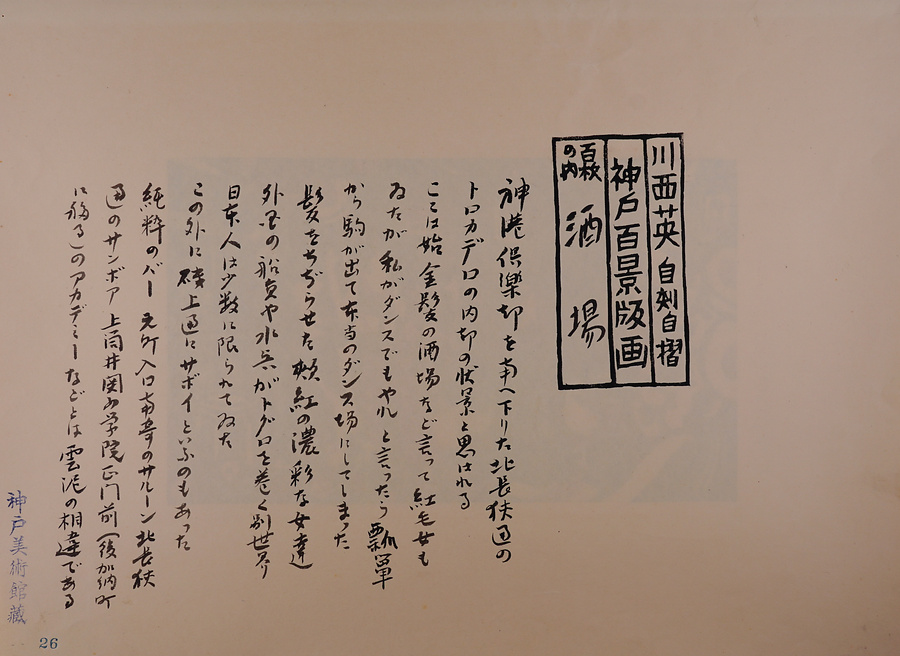 川西英 自刻自摺
神戸百景版画
百景の内 酒場
神港倶楽部を南へ下りた北長狭通の
トロカデロの内部の状景と思はれる
ここは始金髪の酒場など言って紅毛女も
ゐたが私がダンスでもやれと言ったら瓢箪
から駒が出て本当のダンス場にしてしまった
髪をちぢらせた頬紅の濃彩な女達
外国の船員や水兵がトグロを巻く別世界
日本人は少数に限られてゐた
この外に磯上通にサボイといふのもあった
純粋のバー元町入口南寄のサルーン北長狭
通のサンボア上筒井関西学院正門前(後加納町
に移る)のアカデミーなどとは雲泥の相違である
神戸美術館蔵
26